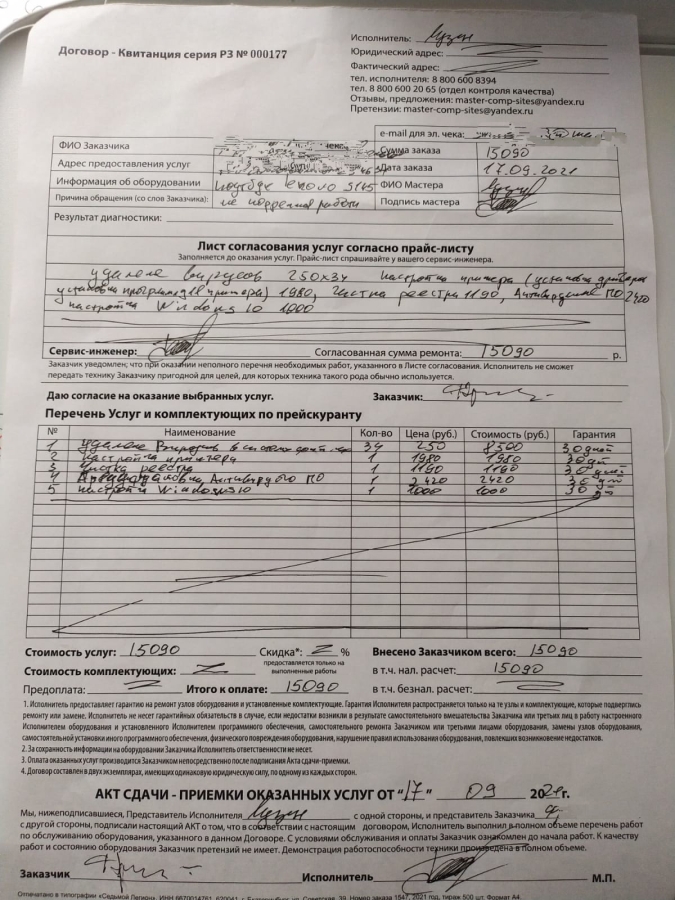 Договор - Квитанция серия РЗ № 000177
Исполнитель:
Юридический адрес:
Фактический адрес:
тел. исполнителя: 8 800 600 8394
тел. 8 800 600 20 65 (отдел контроля качества)
Отзывы, предложения: master-comp-sites@yandex.ru
Претензии: master-comp-sites@yandex.ru
e-mail для эл. чека:
ФИО Заказчика
Сумма заказа 15090
Адрес предоставления услуг
Дата заказа 17.09.2021
Информация об оборудовании ноутбук Lenovo S145
ФИО Мастера
Причина обращения (со слов Заказчика): не корректная работа
Подпись мастера
Результат диагностики:
Лист согласования услуг согласно прайс-листу
Заполняется до оказания услуг. Прайс-лист спрашивайте у вашего сервис-инженера.
удаление вирусов 250х34 настройка принтера (установка драйвера
установка программ для принтера) 1980, Чистка реестра 1190, Антивирусное ПО 2420
настройка Windows 10 1000
Сервис-инженер: Согласованная сумма ремонта: 15090 р.
Заказчик уведомлен, что при оказании неполного перечня необходимых работ, указанного в Листе согласования. Исполнитель не сможет
передать технику Заказчику пригодной для целей, для которых техника такого рода обычно используется.
Даю согласие на оказание выбранных услуг. Заказчик:
Перечень Услуг и комплектующих по прейскуранту
№ Наименование Кол-во Цена (руб.) Стоимость (руб.) Гарантия
1 удаление Вирусов в системе 34 250 8500 30 дней
2 настройка принтера 1 1980 1980 30 дн
3 чистка реестра 1 1190 1190 30 дней
4 Антивирусного ПО 1 2420 2420 30 дн
5 настройка Windows 10 1 1000 1000 30 дн
Стоимость услуг: 15090 Скидка*: Z % Внесено Заказчиком всего: 15090
предоставляется только на
выполненные работы
Стоимость комплектующих: Z в т.ч. нал. расчет: 15090
Предоплата: Z Итого к оплате: 15090 в т.ч. безнал. расчет:
1. Исполнитель предоставляет гарантию на ремонт узлов оборудования и установленные комплектующие. Гарантия Исполнителя распространяется только на те узлы и комплектующие, которые подверглись
ремонту или замене. Исполнитель не несет гарантийных обязательств в случае, если недостатки возникли в результате самостоятельного вмешательства Заказчика или третьих лиц в работу настроенного
Исполнителем оборудования и установленного Исполнителем программного обеспечения, самостоятельного ремонта Заказчиком или третьими лицами оборудования, замены узлов оборудования,
самостоятельной установки иного программного обеспечения, физического повреждения оборудования, нарушение правил использования оборудования, повлекших возникновение недостатков.
2. За сохранность информации на оборудовании Заказчика Исполнитель ответственности не несет.
3. Оплата оказанных услуг производится Заказчиком непосредственно после подписания Акта сдачи-приемки.
4. Договор составлен в двух экземплярах, имеющих одинаковую юридическую силу, по одному из каждой сторон.
АКТ СДАЧИ - ПРИЕМКИ ОКАЗАННЫХ УСЛУГ ОТ "17" 09 2021г.
Мы, нижеподписавшиеся, Представитель Исполнителя с одной стороны, и представитель Заказчика
с другой стороны, подписали настоящий АКТ о том, что в соответствии с настоящим договором, Исполнитель выполнил в полном объеме перечень работ
по обслуживанию оборудования, указанного в данном Договоре. С условиями обслуживания и оплаты Заказчик ознакомлен до начала работ. К качеству
работ и состоянию оборудования Заказчик претензий не имеет. Демонстрация работоспособности техники произведена в полном объеме.
Заказчик Исполнитель М.П.
Отпечатано в типографии «Седьмой Легион», ИНН 6670014761, 620041, г. Екатеринбург, ул. Советская, 39. Номер заказа 1547, 2021 год, тираж 500 шт. Формат А4.